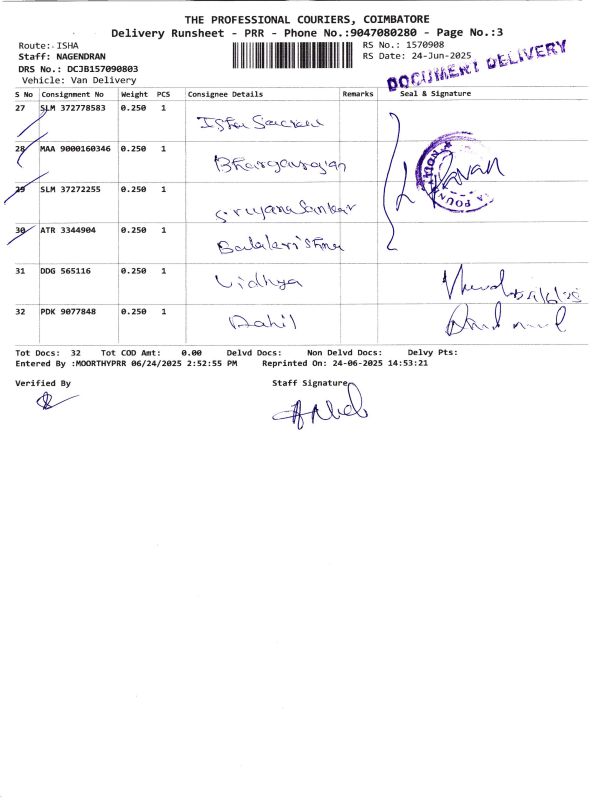 THE PROFESSIONAL COURIERS, COIMBATORE
Delivery Runsheet - PRR - Phone No.:9047080280 - Page No.:3
Route: ISHA RS No.: 1570908
Staff: NAGENDRAN RS Date: 24-Jun-2025
DOCUMENT DELIVERY
DRS No.: DCJB157090803
Vehicle: Van Delivery
S No Consignment No Weight PCS Consignee Details Remarks Seal & Signature
27 SLM 372778583 0.250 1 Isha
28 MAA 9000160346 0.250 1
29 SLM 37272255 0.250 1
30 ATR 3344904 0.250 1 Balakrishna
31 DDG 565116 0.250 1 Vidhya
32 PDK 9077848 0.250 1 Rahil
Tot Docs: 32 Tot COD Amt: 0.00 Delvd Docs: Non Delvd Docs: Delvy Pts:
Entered By :MOORTHYPRR 06/24/2025 2:52:55 PM Reprinted On: 24-06-2025 14:53:21
Verified By Staff Signature